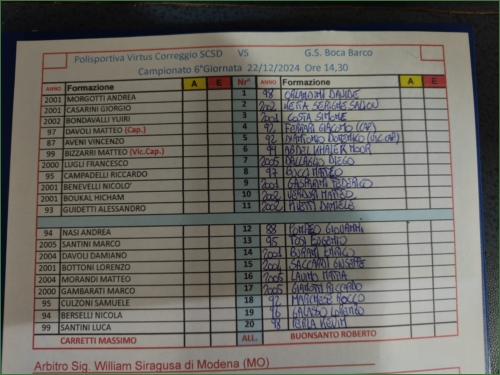 Polisportiva Virtus Correggio SCSD VS G.S. Boca Barco
Campionato 6°Giornata 22/12/2024 Ore 14,30
ANNO Formazione A E Nr° ANNO Formazione A E
2001 MORGOTTI ANDREA 1 98 ORLANDINI DAVIDE
2001 CASARINI GIORGIO 2 2002
2002 BONDAVALLI YUIRI 3 2001 COSTA SIMONE
97 DAVOLI MATTEO (Cap.) 4 92 FERRARI GIACOMO (CAP)
87 AVENI VINCENZO 5 92 DOMENICO (VIC CAP)
99 BIZZARRI MATTEO (Vic.Cap.) 6 94 ABDEL KHALEK NOOR
2000 LUGLI FRANCESCO 7 2005 DALLAGLIO DIEGO
95 CAMPADELLI RICCARDO 8 97 MATTEO
2001 BENEVELLI NICOLO' 9 2001 GASPARINI FEDERICO
2001 BOUKAL HICHAM 10 MATTEO
93 GUIDETTI ALESSANDRO 11 2002 DANIELE
94 NASI ANDREA 12 88 POMPEO GIOVANNI
2005 SANTINI MARCO 13 95 TOSI EUGENIO
2004 DAVOLI DAMIANO 14 2004 ENRICO
2001 BOTTONI LORENZO 15 2004 SACCARDI GIUSEPPE
2004 MORANDI MATTEO 16 2005 MATTIA
2000 GAMBARATI MARCO 17 2005 RICCARDO
95 CULZONI SAMUELE 18 92 MARCHESE ROCCO
94 BERSELLI NICOLA 19 96 GALASSO LORENZO
99 SANTINI LUCA 20 98 PERLA KEVIN
CARRETTI MASSIMO ALL. BUONSANTO ROBERTO
Arbitro Sig. William Siragusa di Modena (MO)